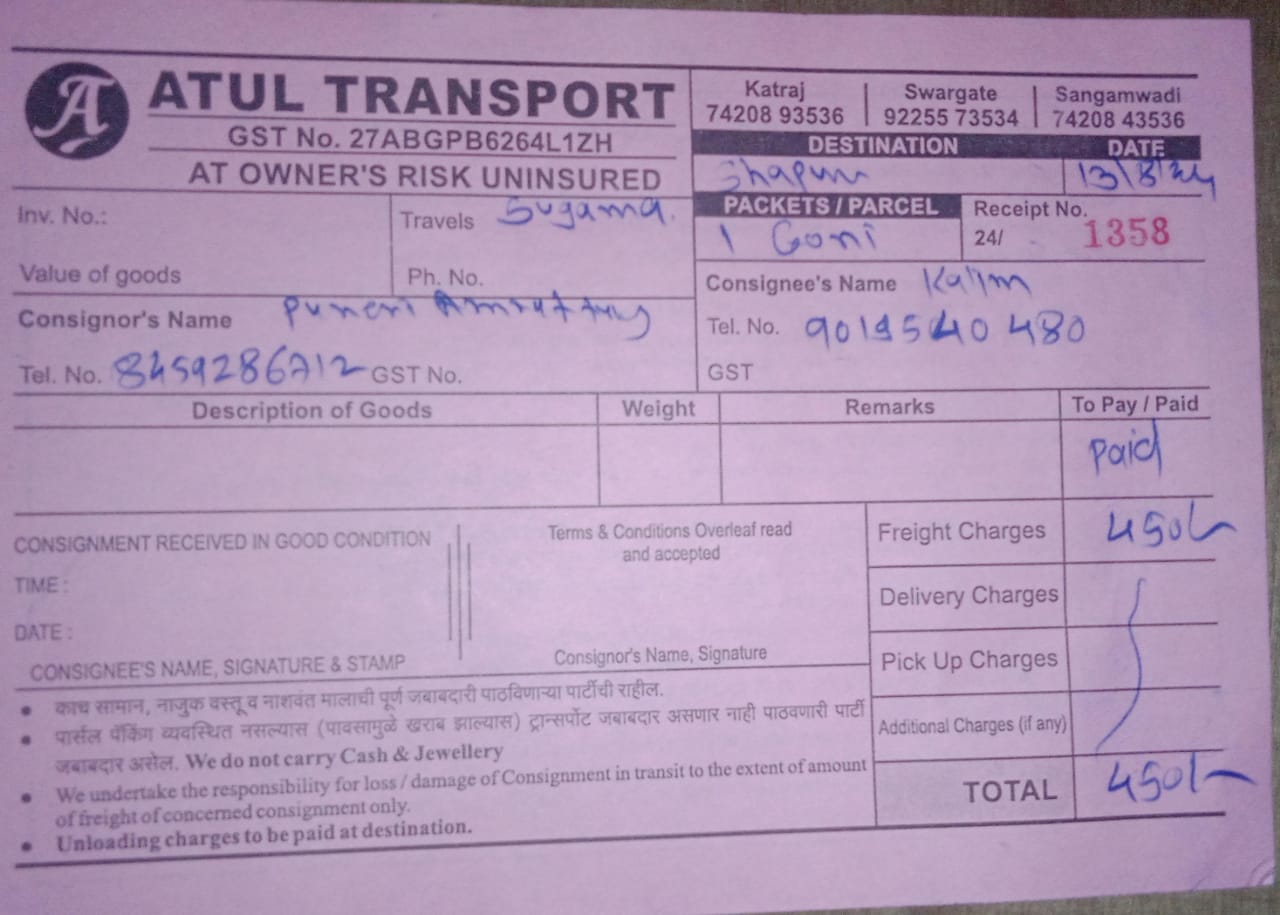 A ATUL TRANSPORT
GST No. 27ABGPB6264L1ZH
AT OWNER'S RISK UNINSURED
Katraj
74208 93536
Swargate
92255 73534
Sangamwadi
74208 43536
DESTINATION
DATE
Shapur
13/8/24
Inv. No.:
Value of goods
Travels Sugama.
Ph. No.
PACKETS / PARCEL
1 Goni
Receipt No.
24/ 1358
Consignor's Name Puneri
Tel. No. 8459286712 GST No.
Consignee's Name Kalim
Tel. No. 9019540480
GST
Description of Goods
Weight
Remarks
To Pay / Paid
Paid
CONSIGNMENT RECEIVED IN GOOD CONDITION
TIME :
DATE :
CONSIGNEE'S NAME, SIGNATURE & STAMP
Terms & Conditions Overleaf read
and accepted
Consignor's Name, Signature
Freight Charges 450/-
Delivery Charges
Pick Up Charges
Additional Charges (if any)
TOTAL 450/-
• काच सामान, नाजुक वस्तू व नाशवंत मालाची पूर्ण जबाबदारी पाठविणाऱ्या पार्टीची राहील.
• पार्सल पॅकिंग व्यवस्थित नसल्यास (पावसामुळे खराब झाल्यास) ट्रान्सपोर्ट जबाबदार असणार नाही पाठवणारी पार्टी
जबाबदार असेल. We do not carry Cash & Jewellery
• We undertake the responsibility for loss / damage of Consignment in transit to the extent of amount
of freight of concerned consignment only.
• Unloading charges to be paid at destination.